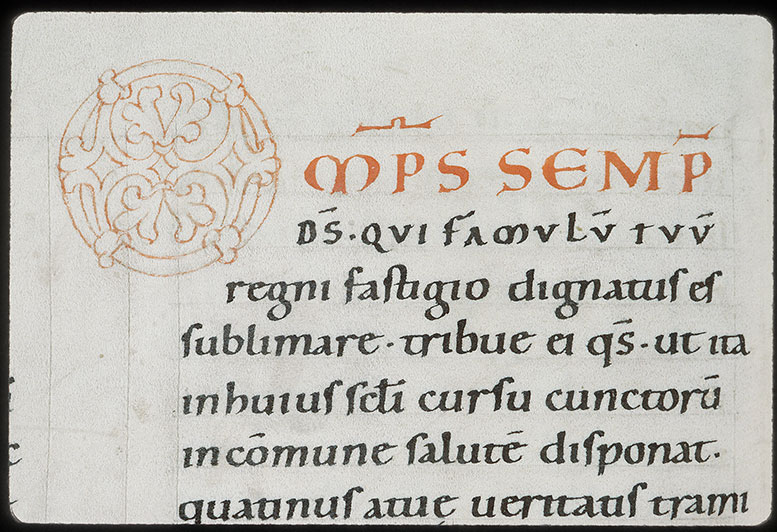 OMPS SEMP
DS̄·QVI FAMULŪ TVŪ
regni fastigio dignatus es
sublimare·tribue ei qs̄·ut ita
in huius scl̄i cursu cunctorū
in cōmune salutē disponat·
quatinus a tuę ueritatis trami